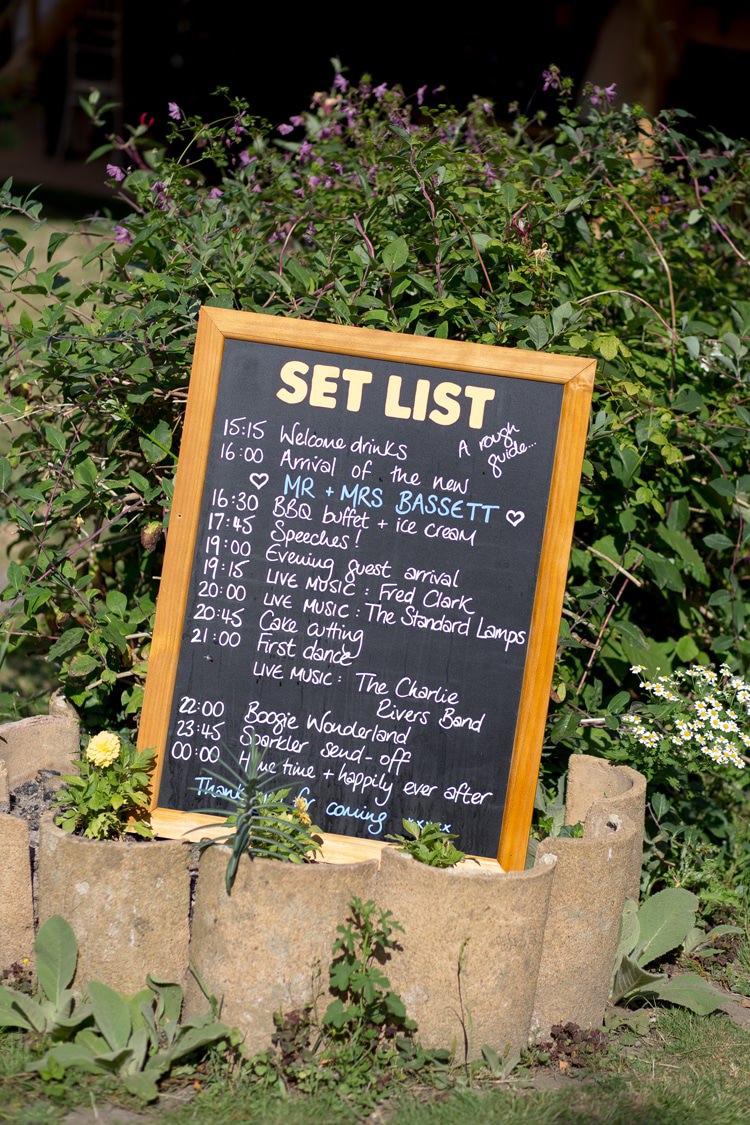 SET LIST
A rough
guide...
15:15 Welcome drinks
16:00 Arrival of the new
♡ MR + MRS BASSETT ♡
16:30 BBQ buffet + ice cream
17:45 Speeches!
19:00 Evening guest arrival
19:15 LIVE MUSIC : Fred Clark
20:00 LIVE MUSIC : The Standard Lamps
20:45 Cake cutting
21:00 First dance
LIVE MUSIC : The Charlie
Rivers Band
22:00 Boogie Wonderland
23:45 Sparkler send-off
00:00 Home time + happily ever after
for coming